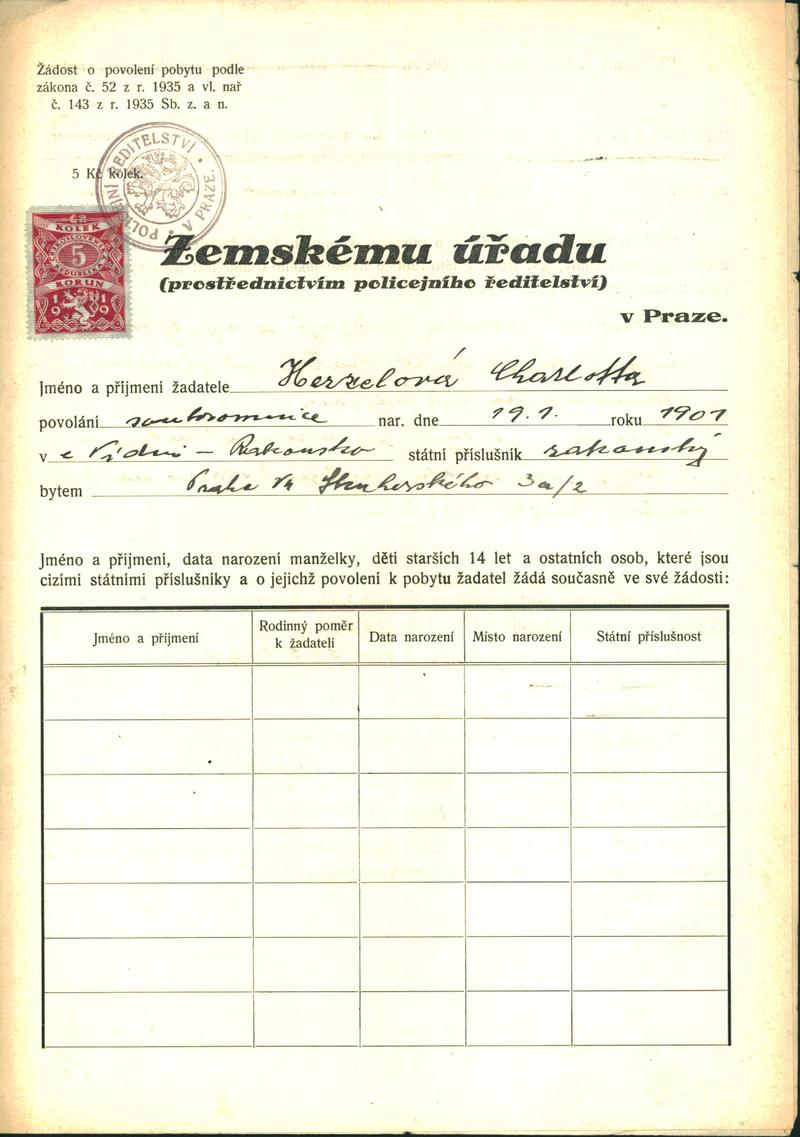 Žádost o povolení pobytu podle
zákona č. 52 z r. 1935 a vl. nař
č. 143 z r. 1935 Sb. z. a n.
5 Kč kolek.
POLICEJNÍ ŘEDITELSTVÍ V PRAZE.
KOLEK
5
KORUN
19 19
Zemskému úřadu
(prostřednictvím policejního ředitelství)
v Praze.
Jméno a příjmení žadatele Herzelová Charlotta
povolání soukromnice nar. dne 19. 1. roku 1901
v e Vídni – Rakousko státní příslušník rakouský
bytem Praha VII 3a/2
Jméno a příjmení, data narození manželky, dětí starších 14 let a ostatních osob, které jsou
cizími státními příslušníky a o jejichž povolení k pobytu žadatel žádá současně ve své žádosti:
Jméno a příjmení
Rodinný poměr
k žadateli
Data narození
Místo narození
Státní příslušnost